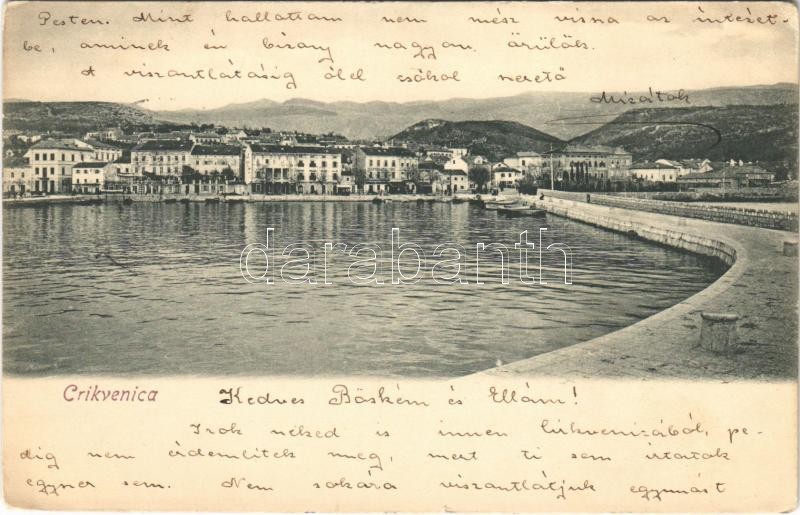 Pesten. Mint hallottam nem mész vissza az intézet-
be, aminek én bizony nagyon örülök.
A viszontlátásig ölel csókol szerető
darabanth
Crikvenica
Kedves Böském és Ellám!
Irok néked is innen Cirkvenizából, pe-
dig nem érdemlitek meg, mert ti sem irtatok
egyszer sem. Nem sokára viszontlátjuk egymást